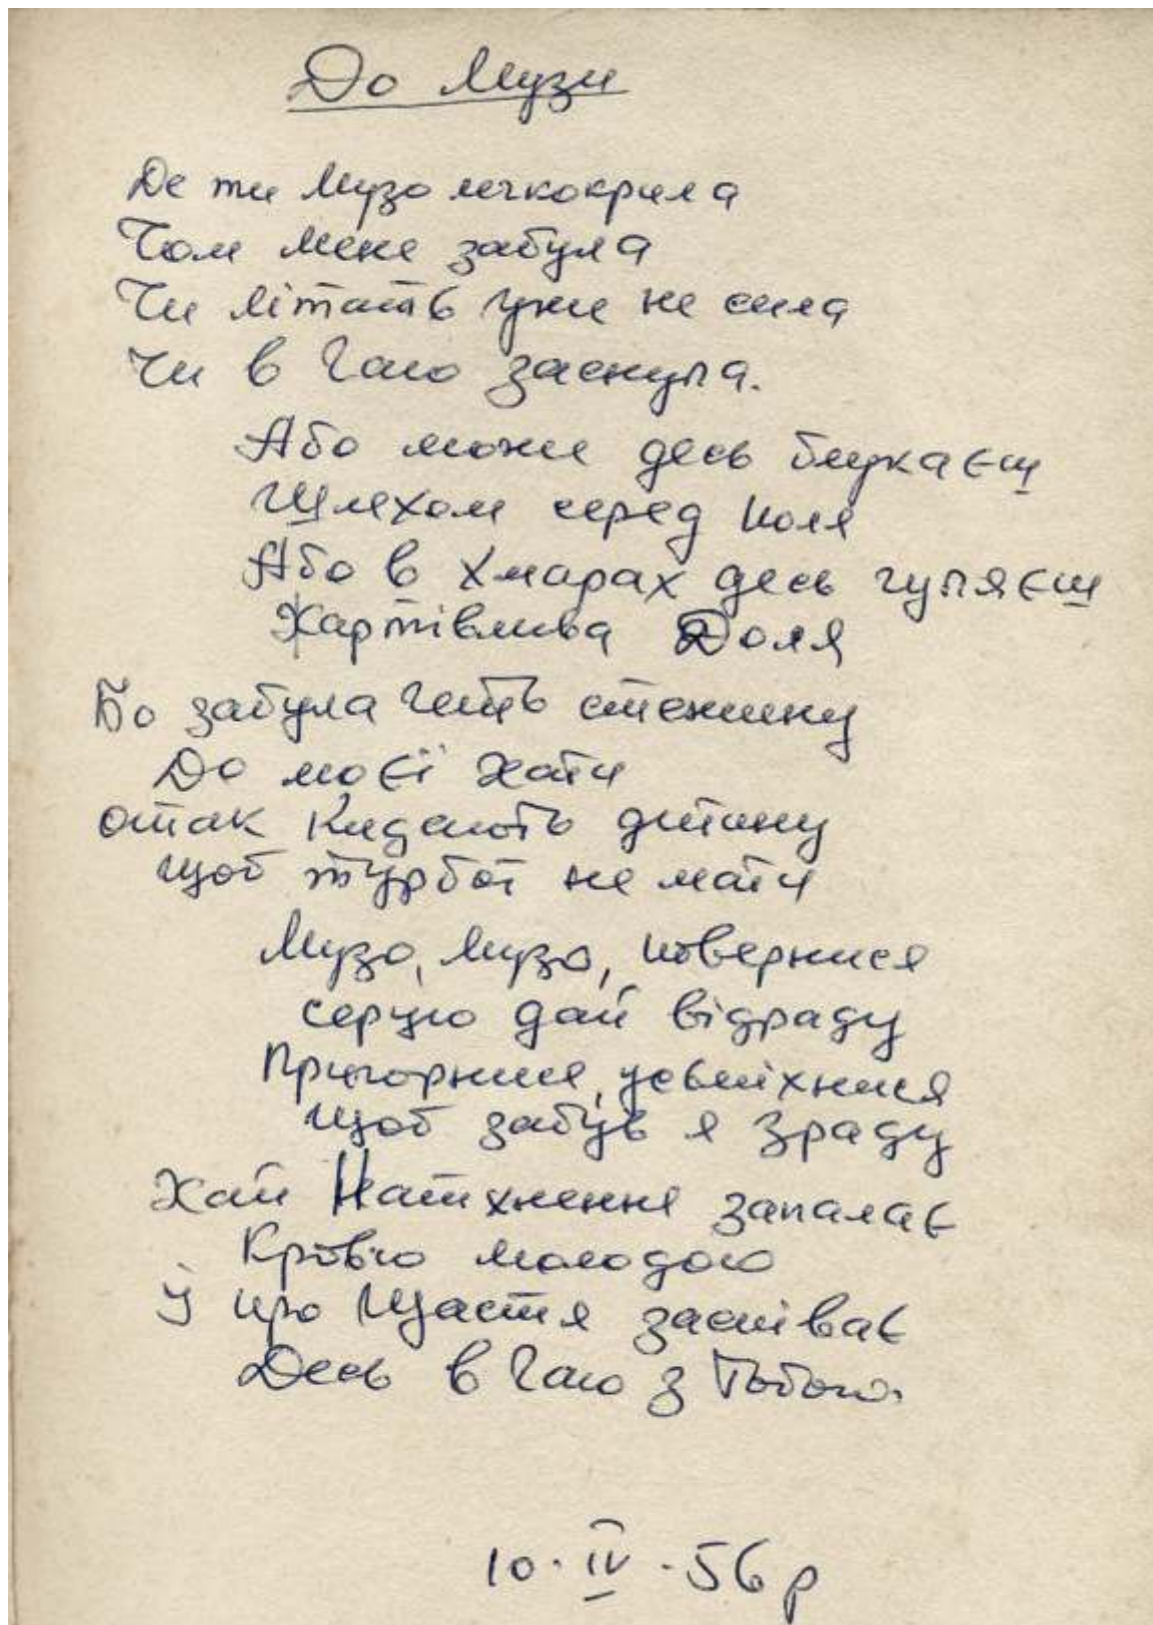 До Музи
Де ти Музо легкокрила
Чом мене забула
Чи літать уже не сила
Чи в Гаю заснула.
Або може десь блукаєш
Шляхом серед поля
Або в хмарах десь гуляєш
Жартівлива Доля
Бо забула геть стежинку
До моєї хати
отак Кидають дитину
щоб турбот не мати
Музо, Музо, повернися
серцю дай відраду
Пригорнися, усміхнися
щоб забув я Зраду
Хай Натхнення запалає
Кров'ю молодою
Й про Щастя заспіває
Десь в Гаю з Тобою.
10.IV.56р